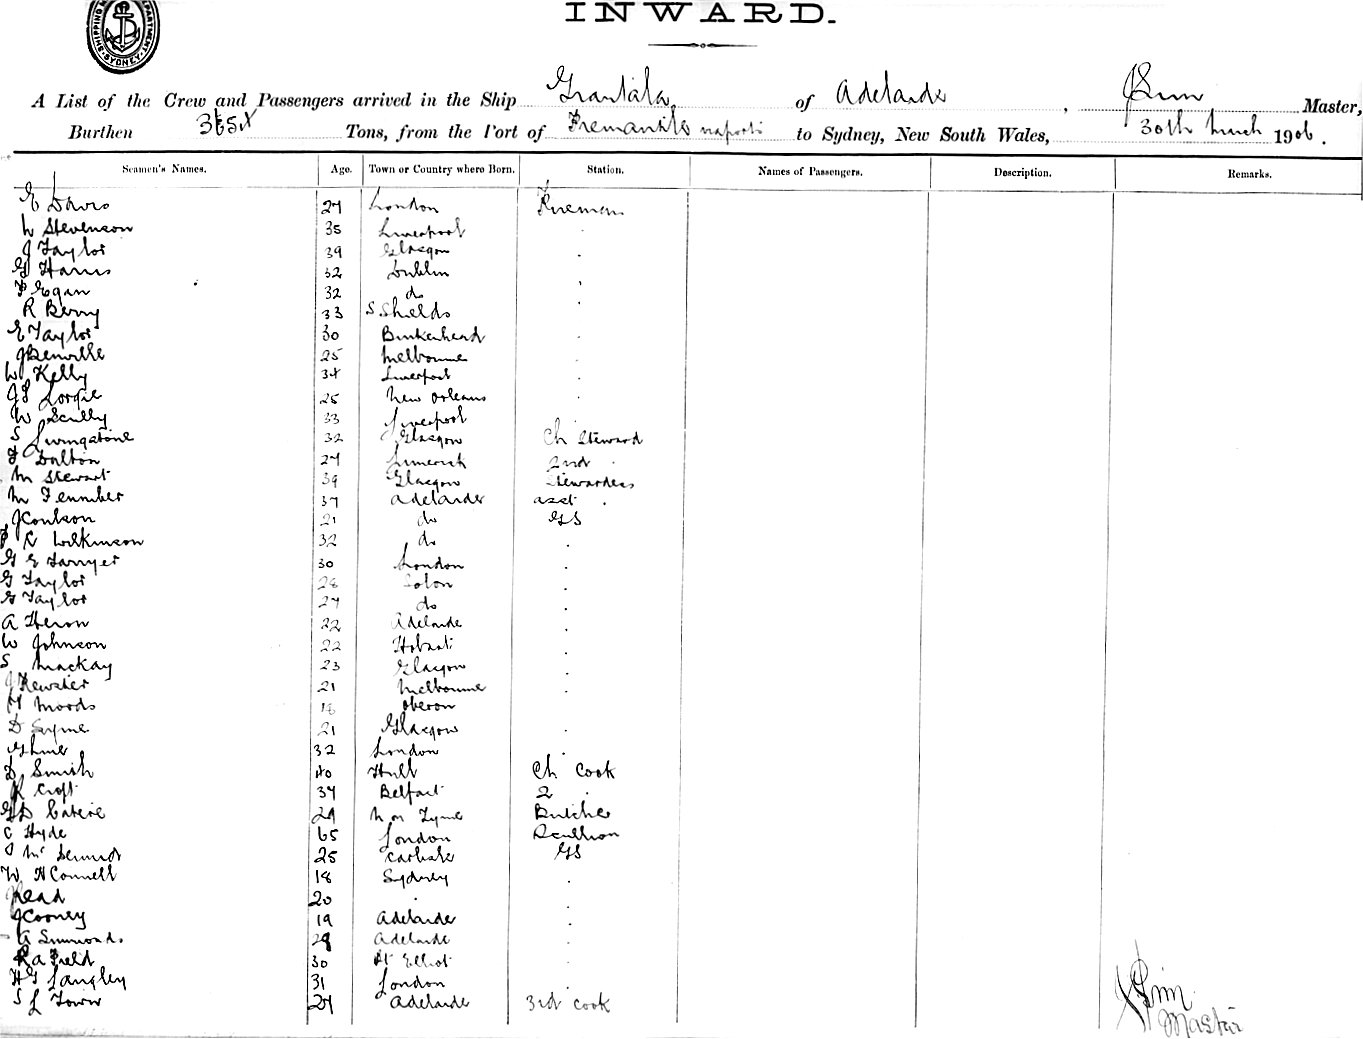 INWARD.
SHIPPING DEPARTMENT. SYDNEY
A List of the Crew and Passengers arrived in the Ship Grantala, of Adelaide, J Sim Master,
Burthen Tons, from the Port of Fremantle to Sydney, New South Wales, 30th March 1906.
Seamen's Names. Age. Town or Country where Born. Station. Names of Passengers. Description. Remarks.
E Davis 27 London Fireman
W Stevenson 35 Liverpool
J Taylor 39 Glasgow
G Harris 32 Dublin
P Egan 32 do
R Berry 33 S. Shields
E Taylor 30 Birkenhead
25 Melbourne
W Kelly 34 Liverpool
25 New Orleans
W Scully 33 Liverpool
S Livingstone 32 Glasgow Ch Steward
F Dalton 27 Limerick 2nd
M Stewart 39 Glasgow Stewardess
M 37 Adelaide asst
J Coulson 21 do GS
Wilkinson 32 do
G E 30 London
G Taylor 26
G Taylor 27 do
A Heron 22 Adelaide
W Johnson 22 Hobart
S Mackay 23 Glasgow
21 Melbourne
Moods 18 Oberon
D Syme 21 Glasgow
32 London
D Smith 40 Hull Ch Cook
R Croft 37 Belfast 2
29 N on Tyne Butcher
C Hyde 65 London Scullion
25 Carlisle GS
W H Connell 18 Sydney
Read 20
J Cooney 19 Adelaide
A Simmonds 29 Adelaide
R A Field 30 Pt Elliot
H G Langley 31 London
S L Town 27 Adelaide 3rd Cook
J Sim
Master